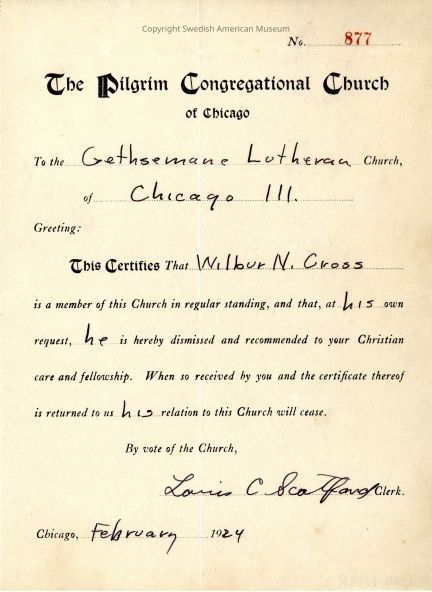 Copyright Swedish American Museum
No. 877
The Pilgrim Congregational Church
of Chicago
To the Gethsemane Lutheran Church,
of Chicago Ill.
Greeting:
This Certifies That Wilbur N. Cross
is a member of this Church in regular standing, and that, at his own
request, he is hereby dismissed and recommended to your Christian
care and fellowship. When so received by you and the certificate thereof
is returned to us his relation to this Church will cease.
By vote of the Church,
Louis C Clerk.
Chicago, February 1924